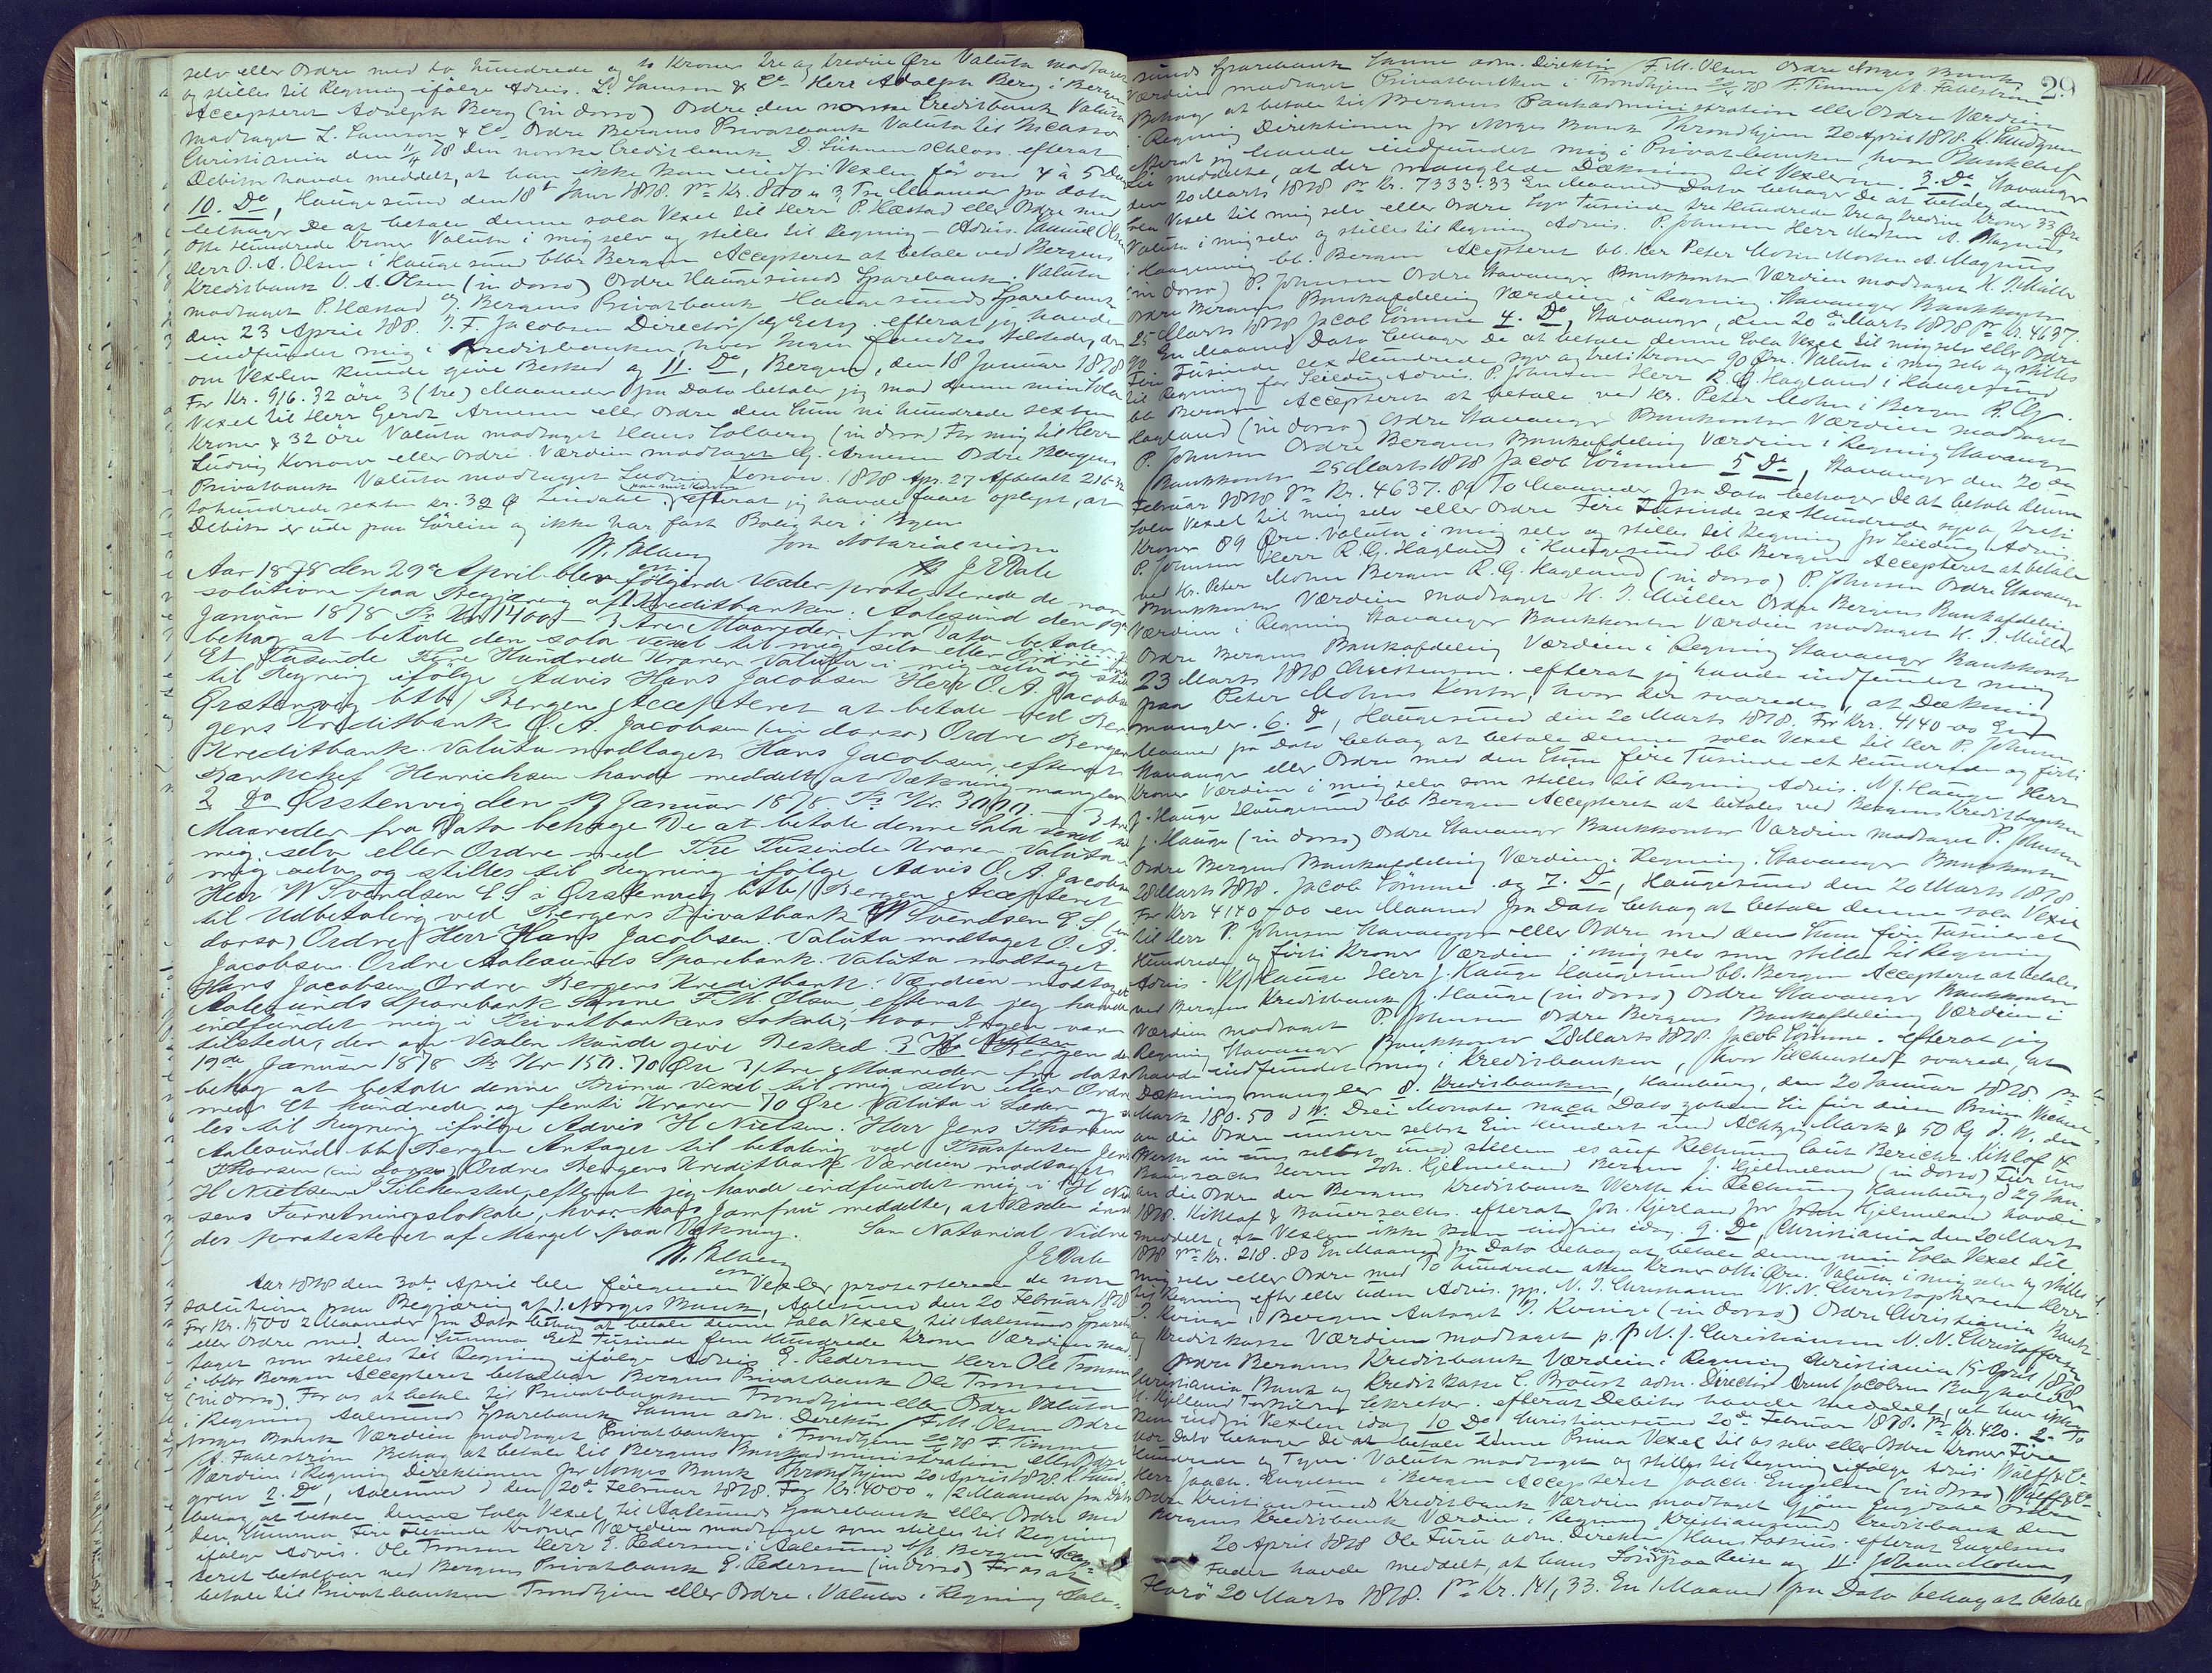 selv eller Ordre med to hundrede og to Kroner tre og tredive Øre Valuta modtaget
og stilles til Regning ifølge Advis. L. Samson & Co Herr Adolph Berg i Bergen
Accepteret Adolph Berg (in dorso) Ordre den norske Creditbank Valuta
modtaget L. Samson & Co Ordre Bergens Privatbank Valuta til Incasso
Christiania den 11/4 78 den norske Creditbank D. Lühmenschloss. efterat
Debitor havde meddelt, at han ikke kan indfri Vexlen før om 4 à 5 Dage
10. Do, Haugesund den 18 Janr 1878. pr Kr. 800 " 3 Tre Maaneder fra dato
behager De at betale denne sola Vexel til Herr P. Hæstad eller Ordre med
Otte Hundrede Kroner Valuta i mig selv og stilles til Regning - Advis. Samuel Olsen
Herr O. A. Olsen i Haugesund btbr Bergen Accepteret at betale ved Bergens
Kreditbank O. A. Olsen (in dorso) Ordre Haugesunds Sparebank. Valuta
modtaget P. Hæstad og Bergens Privatbank Haugesunds Sparebank
den 23 April 1878. J. F. Jacobsen Director / efterat jeg havde
indfundet mig i Kreditbanken, hvor Ingen fandtes tilstede, der
om Vexlen kunde give Besked og 11. Do, Bergen, den 18 Januar 1878
For Kr. 916.32 öre 3 (tre) Maaneder fra Dato betaler jeg mod denne min Sola
Vexel til Herr Gerdt Arnesen eller Ordre den Sum ni hundrede sexten
Kroner & 32 öre Valuta modtaget Hans Solberg (in dorso) For mig til Herr
Ludvig Konow eller ordre. Værdien modtaget G. Arnesen Ordre Bergens
Privatbank Valuta modtaget Ludvig Konow. 1878 Apr. 27 Afbetalt 216.32
tohundrede sexten kr. 32 Ø efterat jeg havde faaet oplyst, at
Debitor er ude paa Søreise og ikke har fast Bolig her i Byen
W. Blberg Som Notarialvidne
J E Dale
Aar 1878 den 29de April blev følgende Vexler protesterede de non
solutione paa Begjæring af 1 Kreditbanken: Aalesund den 19de
Januar 1878 Pr Kr 1400 - 3 tre Maaneder fra Dato betaler
behag at betale den sola Vexel til mig selv eller Ordre med
Et Tusinde Fire Hundrede Kroner Valuta i mig selv og stilles
til Regning ifølge Advis Hans Jacobsen Herr O. A. Jacobsen
Ørstenvig btb/ Bergen Accepteret at betale ved Ber
gens Kreditbank O. A. Jacobsen (in dorso) Ordre Bergens
Kreditbank. Valuta modtaget Hans Jacobsen, efterat
Bankchef Henrichsen havde meddelt, at Dækning mangler
2 Do Ørstenvig den 19 Januar 1878. Pr Kr. 3000 - 3 tre
Maaneder fra Dato behage De at betale denne Sola Vexel til
mig selv eller Ordre med Tre Tusinde Kroner Valuta i
mig selv og stilles til Regning ifølge Advis O. A. Jacobsen
Herr W Svendsen E S i Ørstenvig btb/ Bergen Accepteret
til Udbetaling ved Bergens Privatbank W Svendsen E S (in
dorso) Ordre Herr Hans Jacobsen. Valuta modtaget O. A.
Jacobsen. Ordre Aalesunds Sparebank. Valuta modtaget
Hans Jacobsen Ordre Bergens Kreditbank: Værdien modtaget
Aalesunds Sparebank Sanne F. M. Olsen, efterat jeg havde
indfundet mig i Privatbankens Lokale, hvor Ingen var
tilstede, der om Vexlen kunde give Besked. 3 Bergen den
19de Januar 1878 Pr Kr 150.70 Øre 3/tre Maaneder fra dato
behag at betale denne Prima Vexel til mig selv eller Ordre
med Et hundrede og femti Kroner 70 Øre. Valuta i Læder og stil
les til Regning ifølge Advis H Nielsen. Herr Jens Thorsen
Aalesund bb Bergen Antaget til betaling ved Trasjenten Jens
Thorsen (in dorso) Ordre Bergens Kreditbank Værdien modtaget
H Nielsen J Silchenstedt, efterat jeg havde indfundet mig i H Niel
sens Forretningslokale, hvor hans Jomfru meddelte, at Vexlen
des protesteret af Mangel paa Dækning. Som Notarial Vidne
W. Blberg J E Dale
Aar 1878 den 30te April blev følgende Vexler protesterede de non
solutione paa Begjæring af 1. Norges Bank, Aalesund den 20 Februar 1878
For Kr. 1500 2 Maaneder fra Dato behag at betale denne Sola Vexel til Aalesunds Sparebank
eller Ordre med den Summa Et Tusinde fem Hundrede Kroner Værdien mod
taget som stilles til Regning ifølge Advis E. Pedersen Herr Ole Tronsen
i btbr Bergen Accepteret betalbar Bergens Privatbank Ole Tronsen
(in dorso). For os at betale til Privatbanken Trondhjem eller Ordre Valuta
i Regning Aalesunds Sparebank Sanne adm. Direktör / F. M. Olsen Ordre
Norges Bank Værdien modtaget Privatbanken i Trondhjem 20/4 78 F. Timme
/A. Fahlstrøm Behag at betale til Bergens Bankadministration eller Ordre
Værdien i Regning Direktionen for Norges Bank Throndhjem 20 April 1878 K. Lund
gren 2. Do, Aalesund d den 20de Februar 1878. For Kr. 4000 " /2 Maaneder fra Dato
behag at betale denne Sola Vexel til Aalesunds Sparebank eller Ordre med
den Summa Fire Tusinde Kroner Værdien modtaget som stilles til Regning
ifølge Advis. Ole Tronsen Herr E. Pedersen i Aalesund b/b. Bergen Accep=
teret betalbar ved Bergens Privatbank E. Pedersen (in dorso) For os at
betale til Privatbanken Trondhjem eller Ordre. Valuta i Regning Aale=
29
sunds Sparebank Sanne adm. Direktör / F. M. Olsen Ordre Norges Bank
Værdien modtaget Privatbanken i Trondhjem 20/4 78 F. Timme /A. Fahlstrøm
Behag at betale til Bergens Bankadministration eller Ordre Værdien
i Regning Direktionen for Norges Bank Throndhjem 20 April 1878. K. Lundgren
efterat jeg havde indfundet mig i Privatbanken, hvor Bankchef
Lie meddelte, at der manglede Dækning til Vexlerne. 3. Do, Stavanger
den 20 Marts 1878 pr Kr. 7333.33 En Maaned Dato behager De at betale denne
Sola Vexel til mig selv eller Ordre Syv Tusinde tre Hundrede tre og tredive Kroner 33 Øre
Valuta i mig selv og stilles til Regning Advis. P. Johnsen Herr Morten A. Magnus
i Haugesund bb. Bergen Accepteret bb. Her Peter Mohn Morten A. Magnus
(in dorso) P. Johnsen Ordre Stavanger Bankkontor Værdien modtaget H. J. Müller
Ordre Bergens Bankafdeling Værdien i Regning. Stavanger Bankkontor
25 Marts 1878 Jacob Sömme 4. Do, Stavanger, den 20de Marts 1878 pr Kr. 4637.
90 En Maaned Dato behager De at betale denne Sola Vexel til mig selv eller Ordre
Fire Tusinde sex Hundrede, syv og treti Kroner 90 Øre. Valuta i mig selv og stilles
til Regning for Seildug Advis. P. Johnsen Herr R. G. Hagland i Haugesund
bb Bergen Accepteret at betale ved Hr. Peter Mohn i Bergen R. G.
Hagland (in dorso) Ordre Stavanger Bankkontor Værdien modtaget
P. Johnsen Ordre Bergens Bankafdeling Værdien i Regning Stavanger
Bankkontor 25 Marts 1878 Jacob Sömme 5 Do, Stavanger den 20de
Februar 1878 pr Kr. 4637.89 To Maaneder fra Dato behager De at betale denne
Sola Vexel til mig selv eller Ordre Fire Tusinde sex Hundrede syv og treti
Kroner 89 Øre. Valuta i mig selv og stilles til Regning for Seildug Advis.
P. Johnsen Herr R. G. Hagland i Haugesund bb Bergen Accepteret at betale
ved Hr. Peter Mohn Bergen R. G. Hagland (in dorso) P. Johnsen Ordre Stavanger
Bankkontor Værdien modtaget H. J. Müller Ordre Bergens Bankafdeling
Værdien i Regning Stavanger Bankkontor Værdien modtaget H. J. Müller
Ordre Bergens Bankafdeling Værdien i Regning Stavanger Bankkontor
23 Marts 1878 Christensen. efterat jeg havde indfundet mig
paa Peter Mohns Kontor, hvor der svaredes, at Dækning
mangler. 6. Do, Haugesund den 20 Marts 1878. For Krr. 4140-00 En
Maaned fra Dato behag at betale denne sola Vexel til Herr P. Johnsen
Stavanger eller Ordre med den Sum fire Tusinde et Hundrede og förti
Kroner Værdien i mig selv som stilles til Regning Advis. N J. Hauge Herr
J. Hauge Haugesund bb Bergen Accepteret at betales ved Bergens Kreditbanken
J. Hauge (in dorso) Ordre Stavanger Bankkontor Værdien modtaget P. Johnsen
Ordre Bergens Bankafdeling Værdien i Regning. Stavanger Bankkontor
28 Marts 1878. Jacob Sömme. og 7. Do, Haugesund den 20 Marts 1878
For Krr 4140-00 en Maaned fra Dato behag at betale denne sola Vexel
til Herr P. Johnsen Stavanger eller Ordre med den Sum fire Tusinde et
Hundrede og förti Kroner Værdien i mig selv som stilles til Regning
Advis. Hauge Herr J. Hauge Haugesund bb. Bergen Accepteret at betales
ved Bergens Kreditbank J. Hauge (in dorso) Ordre Stavanger Bankkontor
Værdien modtaget P. Johnsen Ordre Bergens Bankafdeling Værdien i
Regning Stavanger Bankkontor 28 Marts 1878. Jacob Sömme. efterat jeg
havde indfundet mig i Kreditbanken, hvor Silchenstedt svarede, at
Dækning mangler 8. Kreditbanken, Hamburg, den 20 Januar 1878. pr
Mark 180.50 d W. Drei Monate nach Dato zahlen Sie für diesen Prima Wechsel
an die Ordre unserer selbst Ein Hundert und Achtzig Mark & 50 Pg d. W. den
Werth in uns selbst und stellen es auf Rechnung laut Bericht. Kihlaf &
Bauersachs Herrn Joh. Hjelmeland Bergen J. Hjelmeland (in dorso) Für uns
an die Ordre der Bergens Kreditbank Werth in Rechnung Hamburg d 29 Jan.
1878. Kihlaf & Bauersachs. efterat Joh. Kjerland for Hjelmeland havde
meddelt, at Vexlen ikke kan indfries idag. 9. Do, Christiania den 20 Marts
1878 pr Kr. 218.80 En Maaned fra Dato behag at betale denne min Sola Vexel til
mig selv eller Ordre med To hundrede atten Kroner otti Øre. Valuta i mig selv og stilles
til Regning efter eller uden Advis. pp. N. J. Christiansen N. N. Christophersen Herr
T. Kvinge, Bergen Antaget T. Kvinge (in dorso) Ordre Christiania Bank
og Kreditkasse Værdien modtaget p. p N. J. Christiansen N. N. Christoffersen
Ordre Bergens Kreditbank Værdien i Regning Christiania 15 April 1878
Christiania Bank og Kreditkasse C. Broust adm. Director Ernst Jacobsen Bogholder
Sekretær. efterat Debitor havde meddelt, at han ikke
kan indfri Vexlen idag 10 Do Christiansund 20de Februar 1878. Pr Kr. 420. 2. To
Mdr Dato behager De at betale denne Prima Vexel til os selv eller Ordre Kroner Fire
Hundrede og Tyve. Valuta modtaget og stilles til Regning ifølge Advis Wolff & Co
Herr Joach. Engelsen i Bergen Accepteret Joach. Engelsen (in dorso) Wolff & Co
Ordre Kristiansunds Kreditbank Værdien modtaget Ordre
Bergens Kreditbank Værdien i Regning Kristiansunds Kreditbank den
20 April 1878 Ole Furu adm. Direktör / Hans Fossius. efterat Engelsens
Fader havde meddelt, at hans Sön var paa Reise og 11. Johan Mohn
Florö 20 Marts 1878. Pr Kr. 141,33. En 1 Maaned fra Dato behag at betale